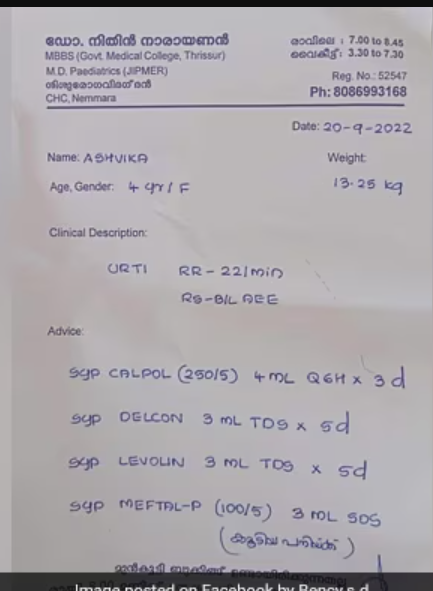 ഡോ. നിതിൻ നാരായണൻ
MBBS (Govt. Medical College, Thrissur)
M.D. Paediatrics (JIPMER)
ശിശുരോഗവിദഗ്ദൻ
CHC, Nemmara
രാവിലെ : 7.00 to 8.45
വൈകീട്ട് : 3.30 to 7.30
Reg. No.: 52547
Ph: 8086993168
Date: 20-9-2022
Name: ASHVIKA
Weight:
Age, Gender: 4 yr / F
13.25 kg
Clinical Description:
URTI RR - 22/min
RS - B/L AEE
Advice:
Syp CALPOL (250/5) 4 mL Q6H x 3 d
Syp DELCON 3 mL TDS x 5d
Syp LEVOLIN 3 mL TDS x 5d
Syp MEFTAL-P (100/5) 3 mL SOS
(കൂടിയ പനിക്ക്)
Image posted on Facebook by Bency s d